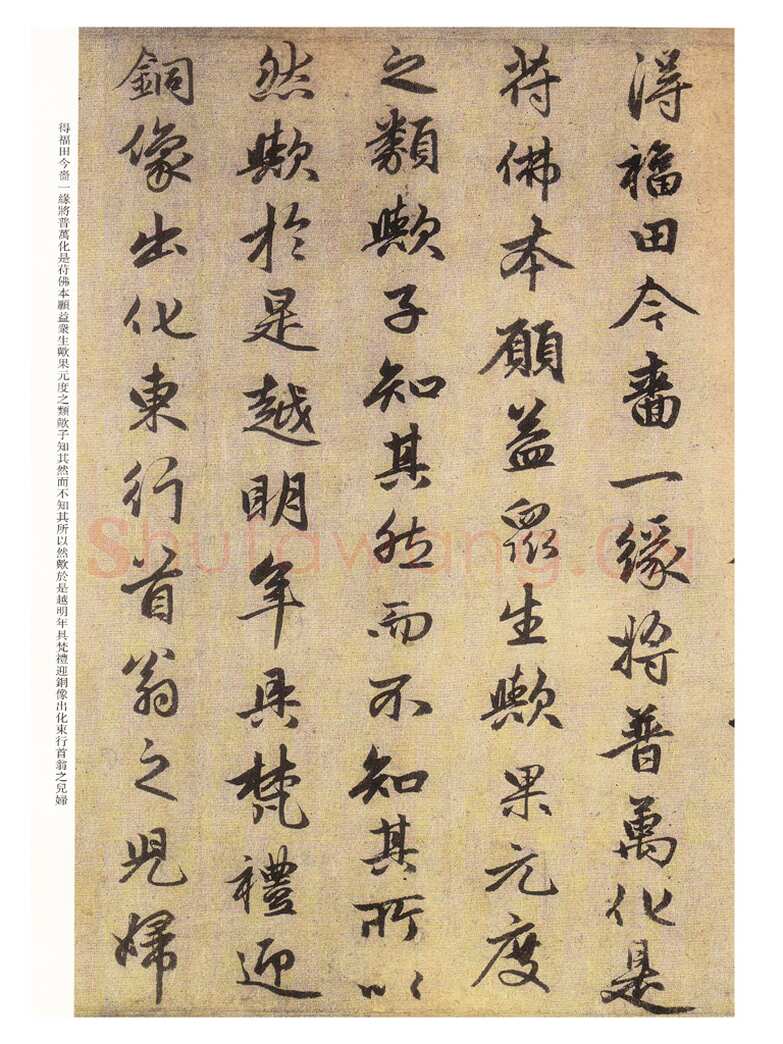 得福田今嗇一緣將普萬化是
荷佛本願益眾生歟果元度
之類歟子知其然而不知其所以
然歟於是越明年具梵禮迎
銅像出化東行首翁之兒婦
得福田今嗇一緣將普萬化是荷佛本願益眾生歟果元度之類歟子知其然而不知其所以然歟於是越明年具梵禮迎銅像出化東行首翁之兒婦
Shufawang.cn